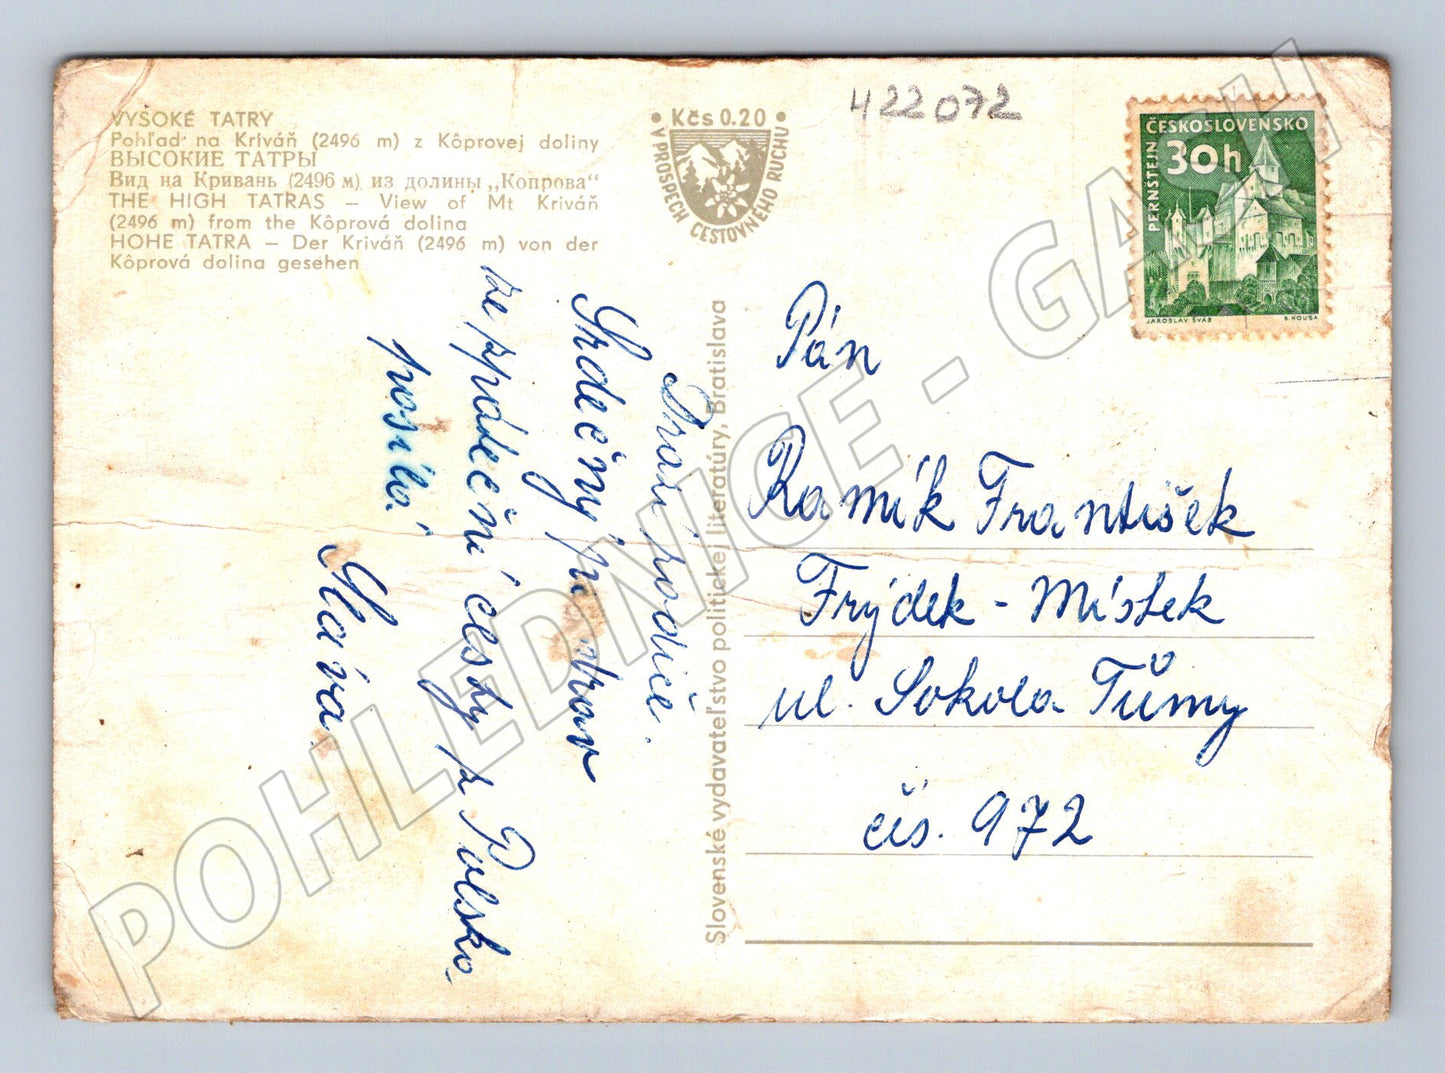 VYSOKÉ TATRY
Pohľad na Kriváň (2496 m) z Kôprovej doliny
ВЫСОКИЕ ТАТРЫ
Вид на Кривань (2496 м) из долины „Копрова“
THE HIGH TATRAS – View of Mt Kriváň
(2496 m) from the Kôprová dolina
HOHE TATRA – Der Kriváň (2496 m) von der
Kôprová dolina gesehen
• Kčs 0.20 •
V PROSPECH CESTOVNÉHO RUCHU
422072
ČESKOSLOVENSKO
30h
PERNŠTEJN
JAROSLAV ŠVÁB
B. HOUSA
Drazí rodiče.
Srdečný pozdrav
ze zpáteční cesty z Polska
posílá
Sláva
Slovenské vydavateľstvo politickej literatúry, Bratislava
Pán
Kamík František
Frýdek - Místek
ul. Sokola Tůmy
čís. 972
POHLEDNICE - GALU